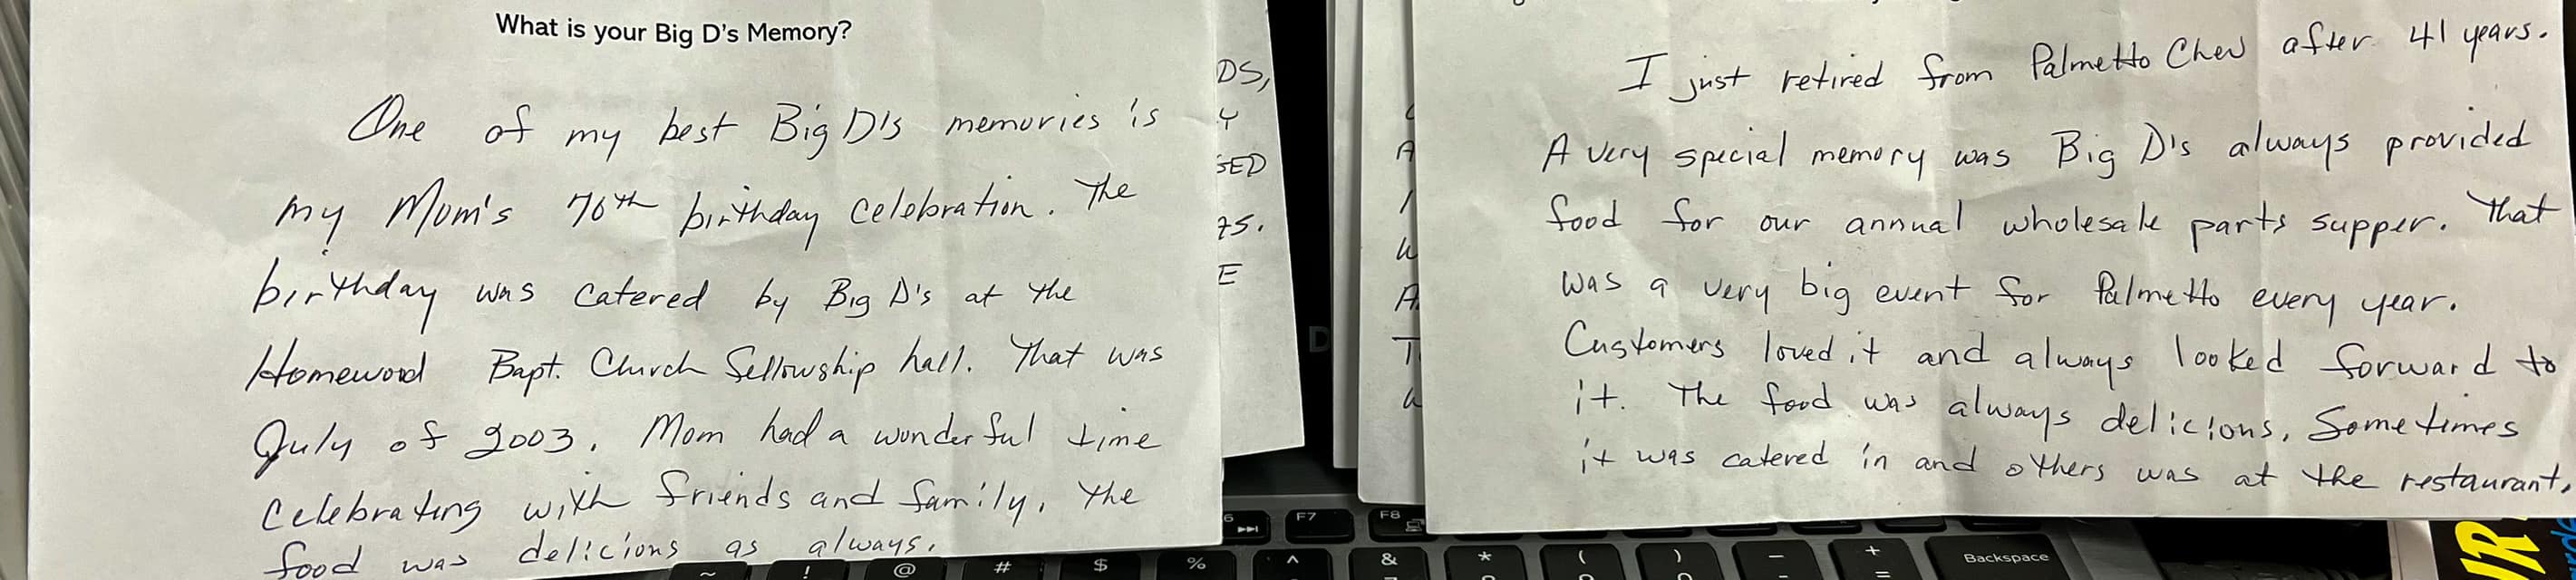 What is your Big D's Memory?
One of my best Big D's memories is
my Mom's 70th birthday celebration. The
birthday was catered by Big D's at the
Homewood Bapt. Church fellowship hall. That was
July of 2003. Mom had a wonderful time
celebrating with friends and family. The
food was delicious as always.
DS,
Y
SED
ZS.
E
A
I
W
A
T
W
I just retired from Palmetto Chev after 41 years.
A very special memory was Big D's always provided
food for our annual wholesale parts supper. That
was a very big event for Palmetto every year.
Customers loved it and always looked forward to
it. The food was always delicious. Sometimes
it was catered in and others was at the restaurant.
F7
F8
~ ! @ # $ % ^ & * ( ) _ + =
Backspace